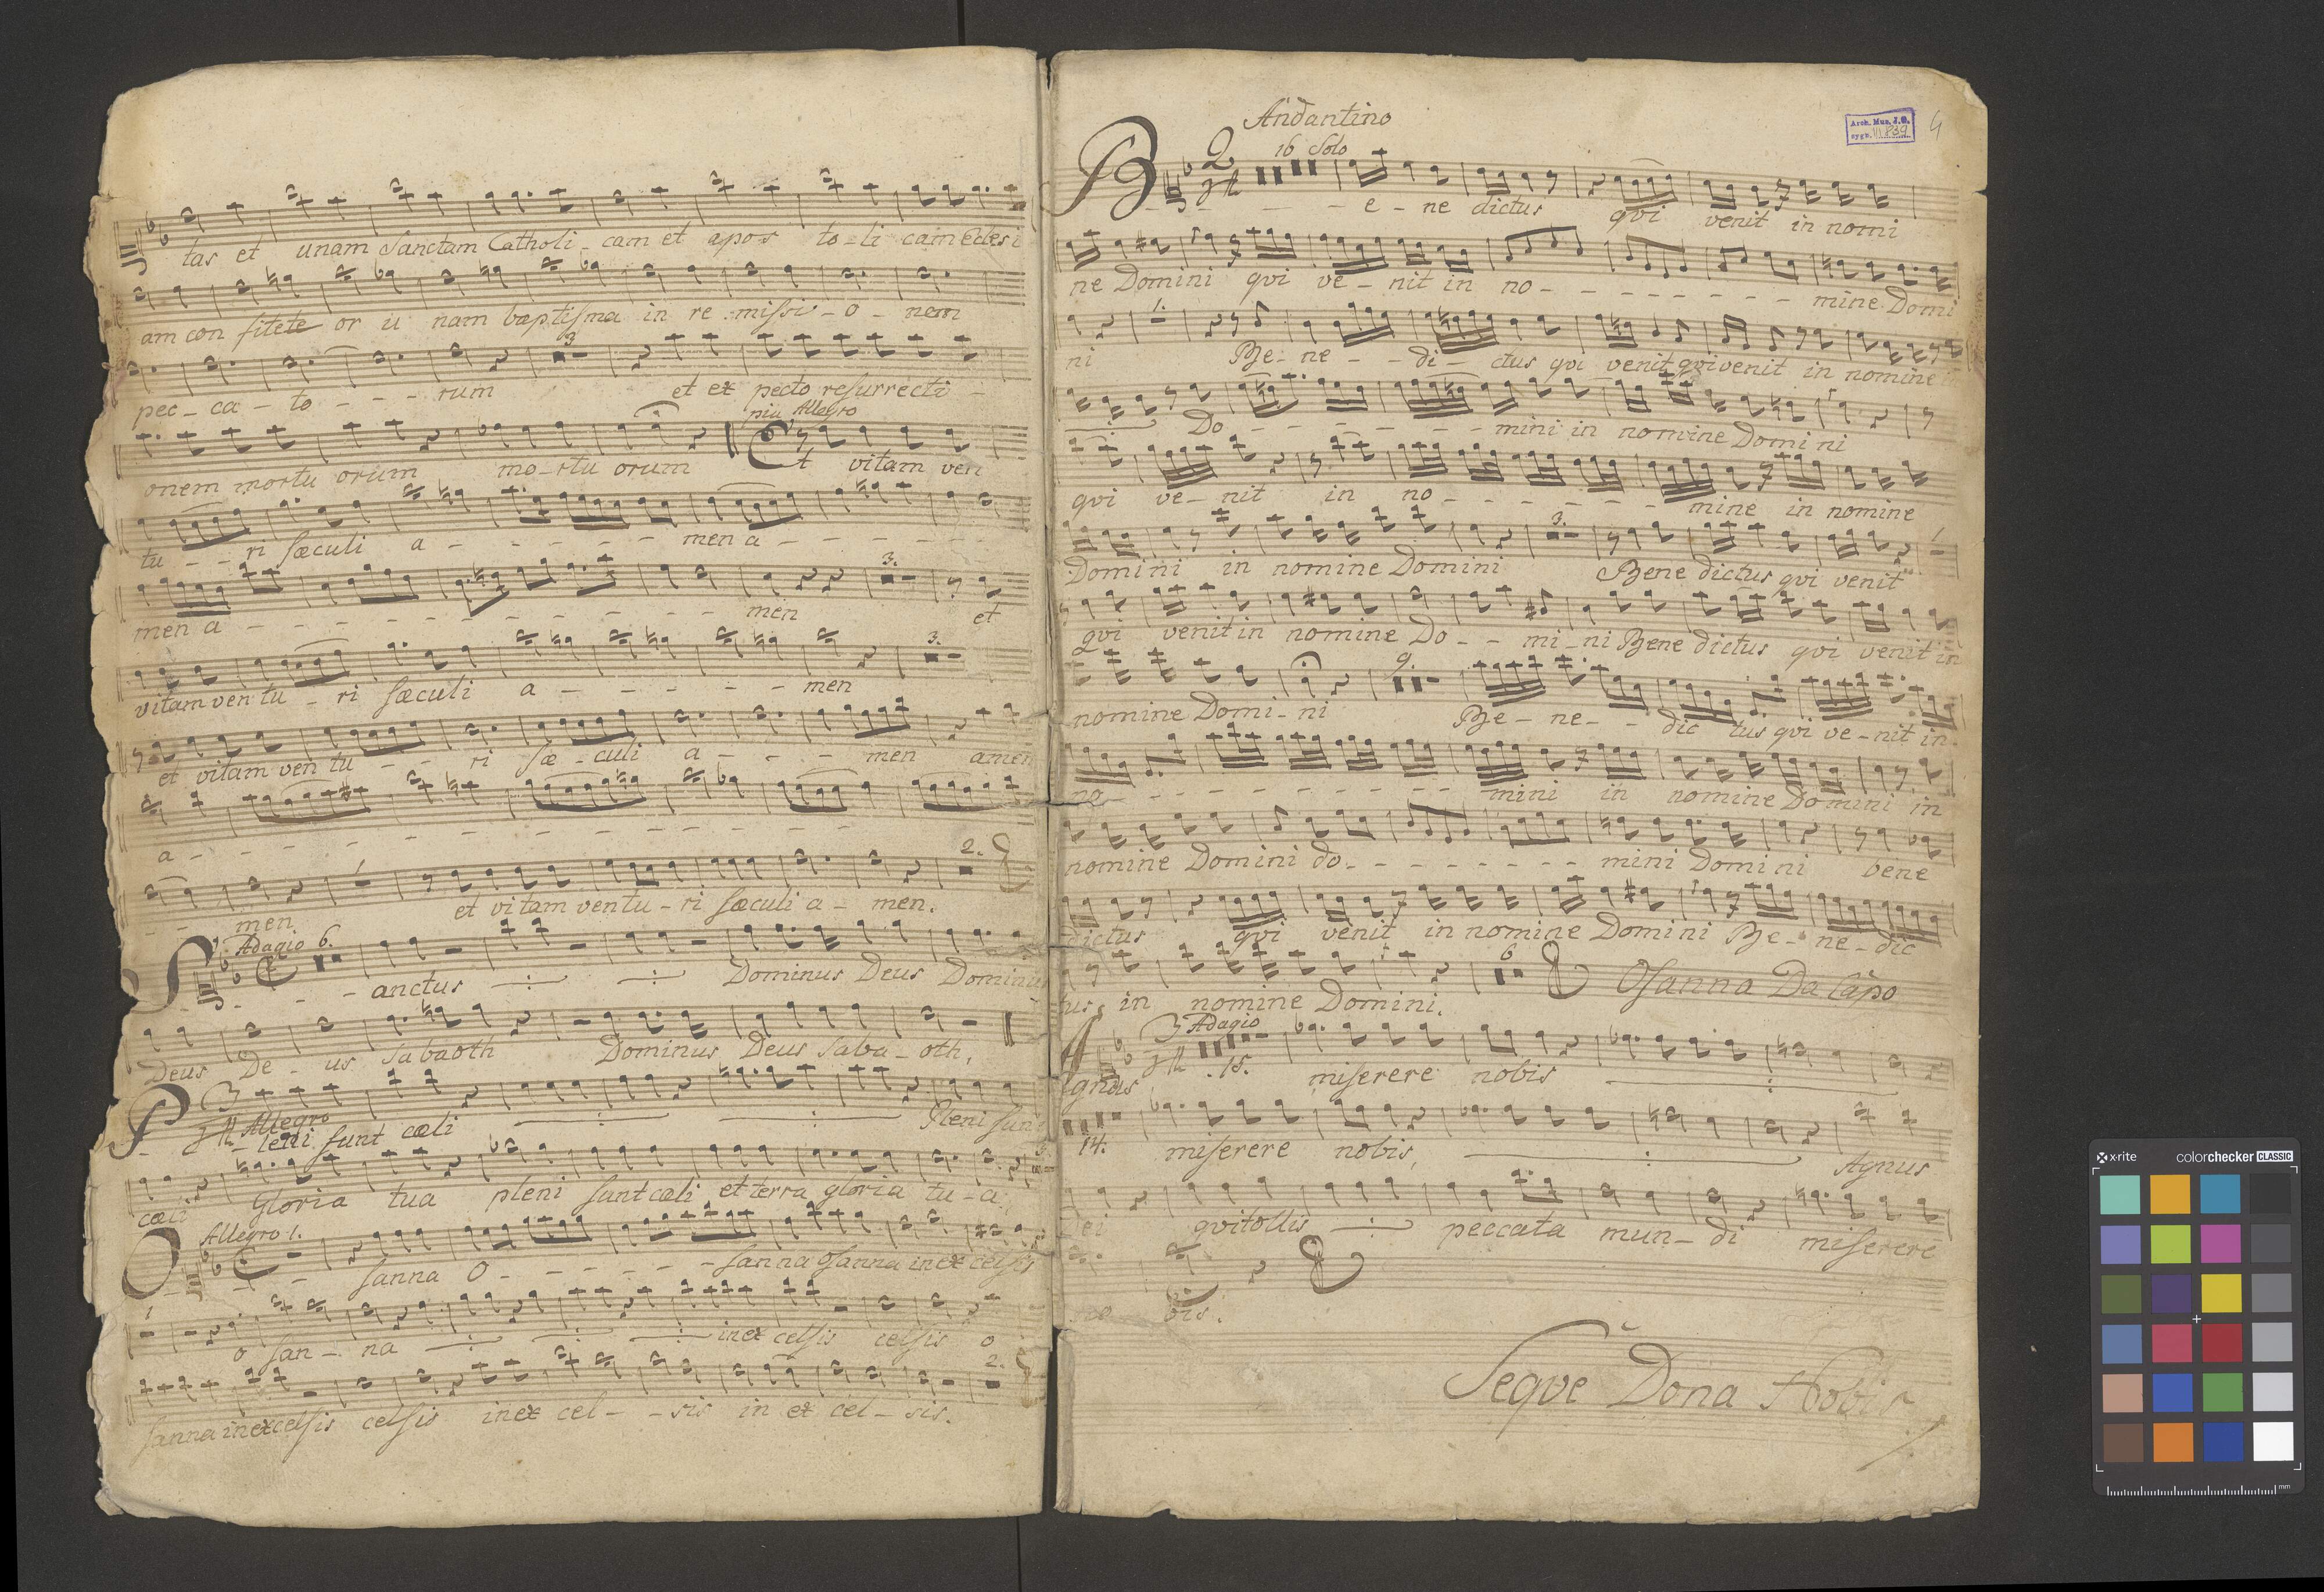 tas et unam Sanctam Catholi - cam et apos to - li cam Eclesi
am con fitete or u nam baptisma in re missi - o - nem
3
pec - ca - to - - - rum et ex pecto resurrecti -
piu Allegro
onem mortu orum mo - rtu orum Et vitam ven
tu - - ri sæculi a - - - - - - men a - - - - - -
3.
men a - - - - - - - - - men et
3.
vitam ven tu - ri sæculi a - - - - - - men
et vitam ven tu - - ri sæ - culi a - - - men amen
a - - - - - - - - - - - - -
1 2.
- - men et vitam ventu - ri sæculi a - men.
Adagio 6.
S - - - anctus Dominus Deus Dominus
Deus De - us Sabaoth Dominus Deus Saba - oth.
3/4 Allegro
P - - leni sunt cœli Pleni sunt
cœli Gloria tua pleni sunt cœli et terra gloria tu - a.
Allegro 1.
O - - - sanna O - - - - - - - sanna Osanna in ex celsis
1
o san - na in ex celsis celsis o
2.
sanna in excelsis celsis in ex cel - - sis in ex cel - sis.
Andantino
Arch. Muz. J. G.
sygn. III 839
4
2/4 16 Solo
B - - - - e - ne dictus qvi venit in nomi
ne Domini qvi ve - nit in no - - - - - - - - mine Domi
1.
ni Be - ne - - di - ctus qvi venit qvi venit in nomine
Do - - - - - - mini in nomine Domini
qvi ve - nit in no - - - - - - mine in nomine
3. 1
Domini in nomine Domini Bene dictus qvi venit
qvi venit in nomine Do - - mi - ni Bene dictus qvi venit in
9.
nomine Domi - ni Be - ne - - dic tus qvi ve - nit in
no - - - - - - - - - - mini in nomine Domini in
nomine Domini do - - - - - - - - mini Domini bene
dictus qvi venit in nomine Domini Be - ne - dic
6
tus, in nomine Domini. Osanna Da Capo
3/4 Adagio
15.
Agnus miserere nobis
14. miserere nobis, Agnus
Dei qvi tollis peccata mun - di miserere
no bis.
Seqve Dona Nobis